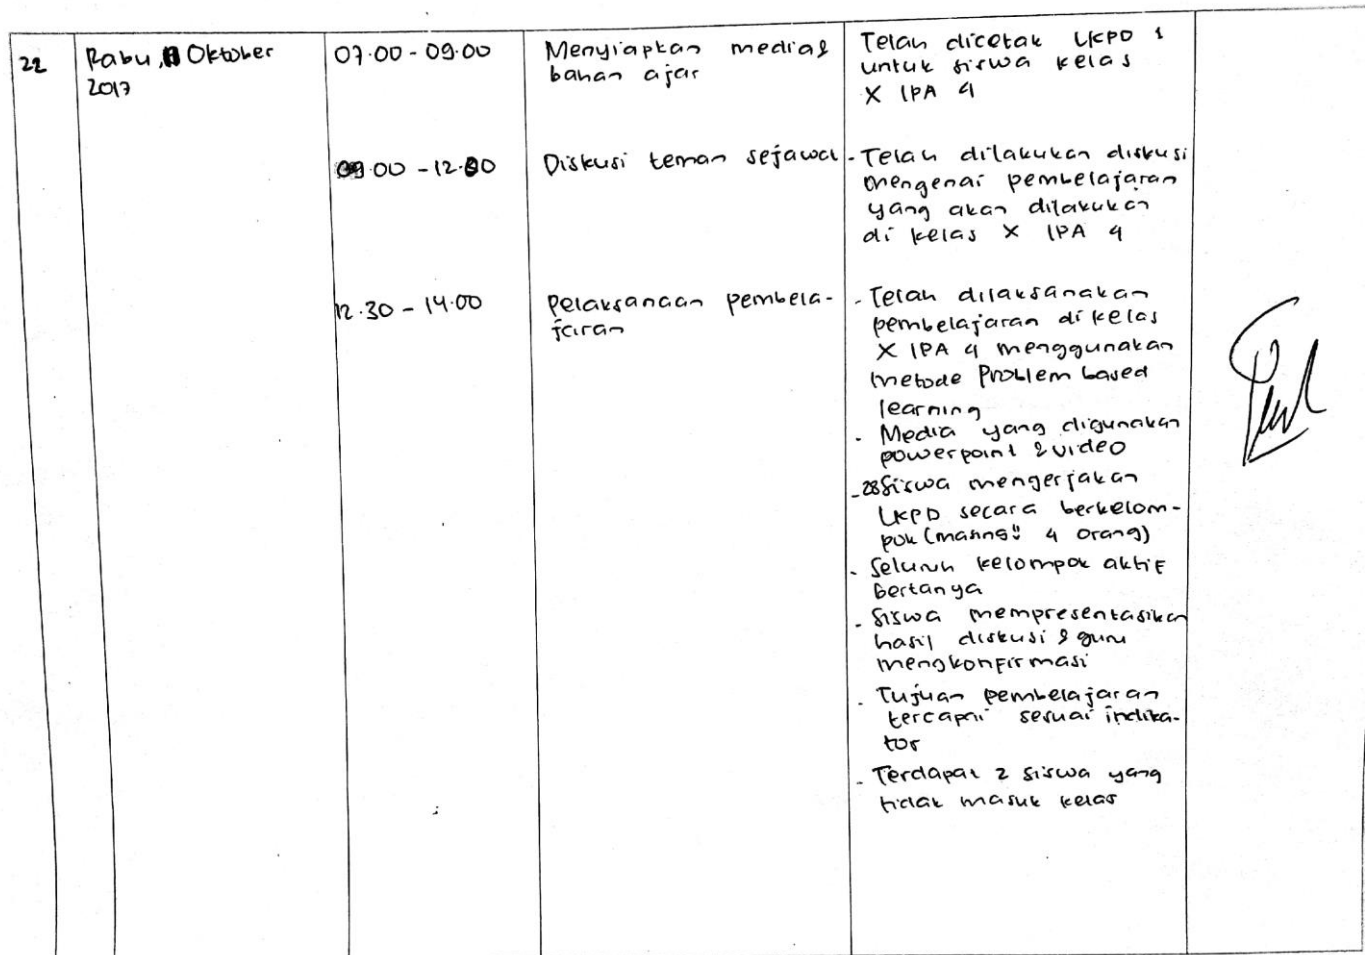 22
Rabu, Oktober
2017
07.00 - 09.00
Menyiapkan media &
bahan ajar
Telah dicetak LKPD 1
untuk siswa kelas
X IPA 4
09.00 - 12.00
Diskusi teman sejawat
- Telah dilakukan diskusi
mengenai pembelajaran
yang akan dilakukan
di kelas X IPA 4
12.30 - 14.00
Pelaksanaan pembela-
jaran
- Telah dilaksanakan
pembelajaran di kelas
X IPA 4 menggunakan
metode Problem based
learning
- Media yang digunakan
powerpoint & video
- 28 siswa mengerjakan
LKPD secara berkelom-
pok (masing" 4 orang)
- Seluruh kelompok aktif
bertanya
- Siswa mempresentasikan
hasil diskusi & guru
mengkonfirmasi
- Tujuan pembelajaran
tercapai sesuai indika-
tor
- Terdapat 2 siswa yang
tidak masuk kelas